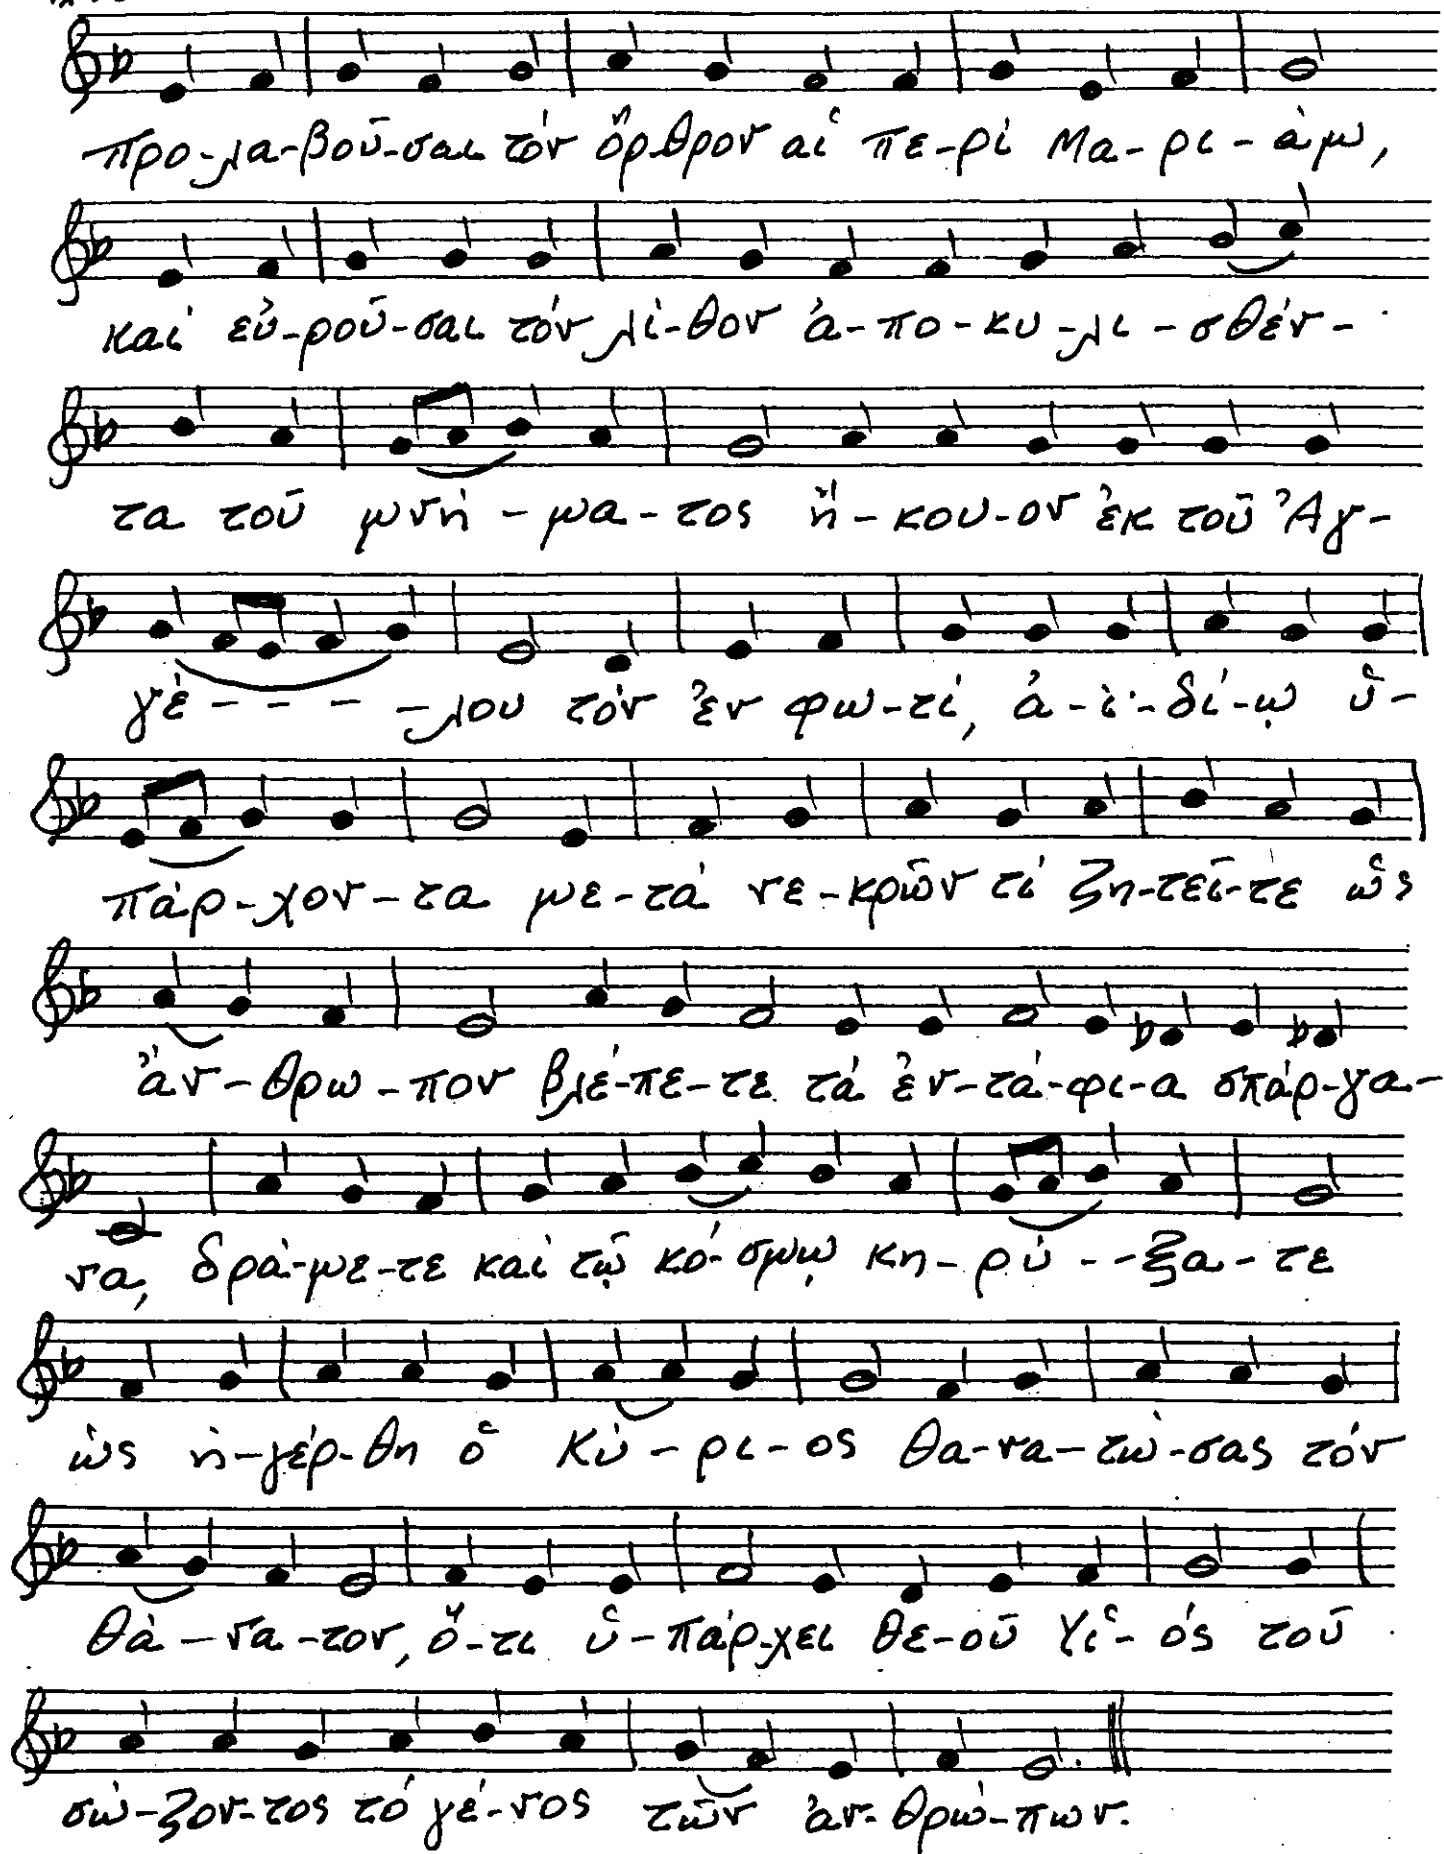 προ-λα-βοῦ-σαι τόν ὄρ-θρον αἱ πε-ρί Μα-ρι-άμ,
καί εὑ-ροῦ-σαι τόν λί-θον ἀ-πο-κυ-λι-σθέν-
τα τοῦ μνή-μα-τος ἤ-κου-ον ἐκ τοῦ Ἀγ-
γέ- - - -λου τόν ἐν φω-τί, ἀ-ϊ-δί-ῳ ὑ-
πάρ-χον-τα με-τά νε-κρῶν τί ζη-τεῖ-τε ὡς
ἄν-θρω-πον βλέ-πε-τε τά ἐν-τά-φι-α σπάρ-γα-
να, δρά-με-τε καί τῷ κό-σμῳ κη-ρύ--ξα-τε
ὡς ἠ-γέρ-θη ὁ Κύ-ρι-ος θα-να-τώ-σας τόν
θά-να-τον, ὅ-τι ὑ-πάρ-χει Θε-οῦ Υἱ-ός τοῦ
σώ-ζον-τος τό γέ-νος τῶν ἀν-θρώ-πων.